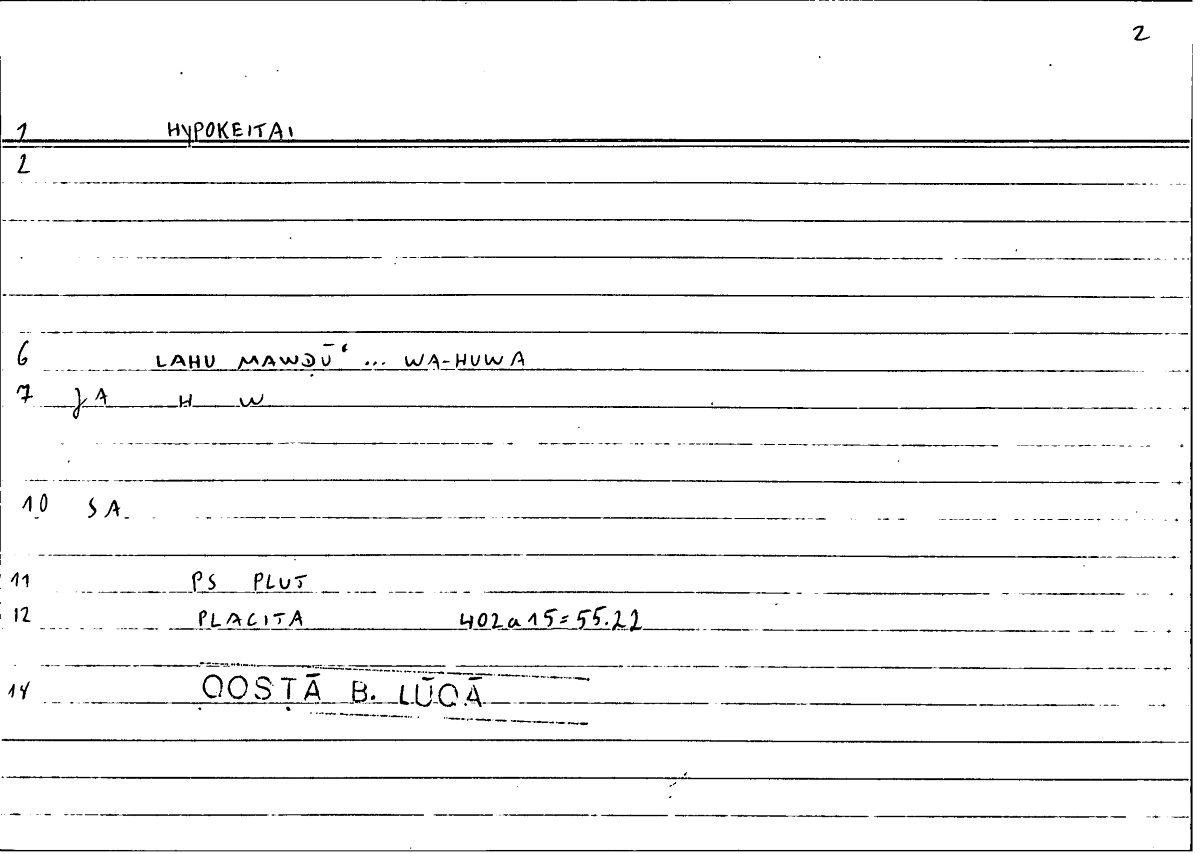 2
1 HYPOKEITAI
2
6 LAHU MAWḌŪʿ ... WA-HUWA
7 A H W
10 SA
11 PS PLUT
12 PLACITA 402a15=55.22
14 QOSṬĀ B. LŪQĀ